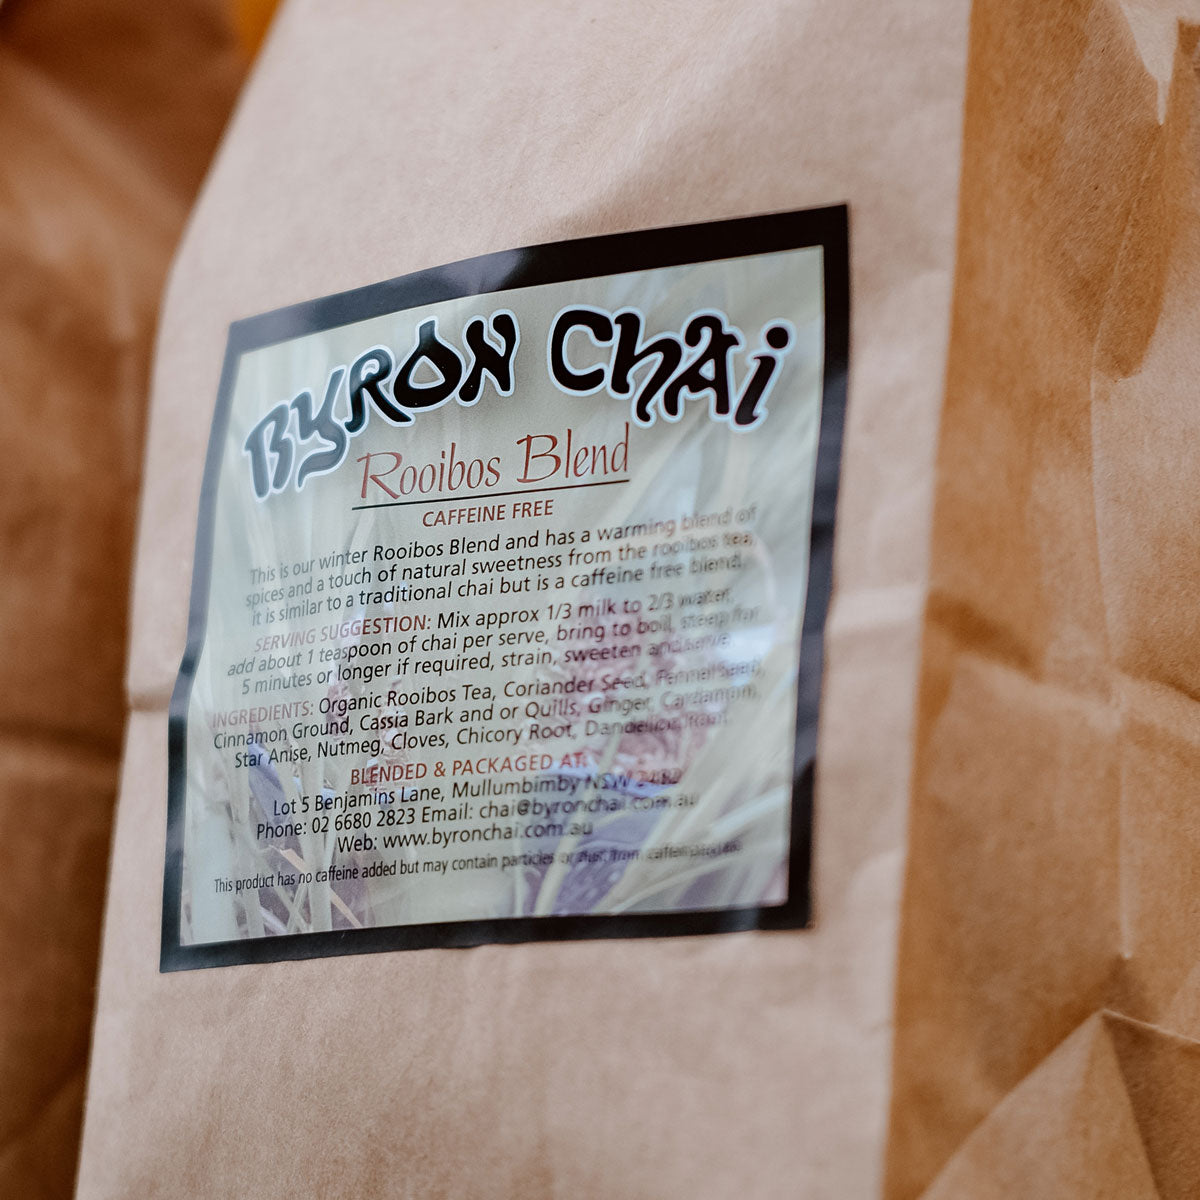 Byron Chai
Rooibos Blend
CAFFEINE FREE
This is our winter Rooibos Blend and has a warming blend of
spices and a touch of natural sweetness from the rooibos tea,
it is similar to a traditional chai but is a caffeine free blend.
SERVING SUGGESTION: Mix approx 1/3 milk to 2/3 water,
add about 1 teaspoon of chai per serve, bring to boil, steep for
5 minutes or longer if required, strain, sweeten and serve.
INGREDIENTS: Organic Rooibos Tea, Coriander Seed, Fennel Seed,
Cinnamon Ground, Cassia Bark and or Quills, Ginger, Cardamom,
Star Anise, Nutmeg, Cloves, Chicory Root, Dandelion Root
BLENDED & PACKAGED AT:
Lot 5 Benjamins Lane, Mullumbimby NSW 2482
Phone: 02 6680 2823 Email: chai@byronchai.com.au
Web: www.byronchai.com.au
This product has no caffeine added but may contain particles or dust from